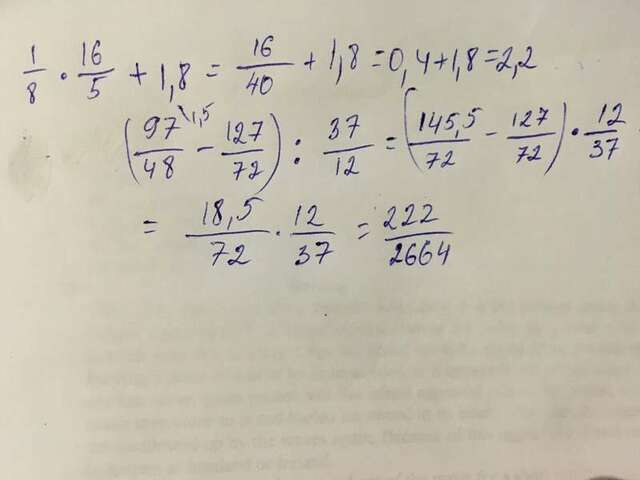 1/8 · 16/5 + 1,8 = 16/40 + 1,8 = 0,4 + 1,8 = 2,2
(97\1,5/48 - 127/72) : 37/12 = (145,5/72 - 127/72) · 12/37
= 18,5/72 · 12/37 = 222/2664